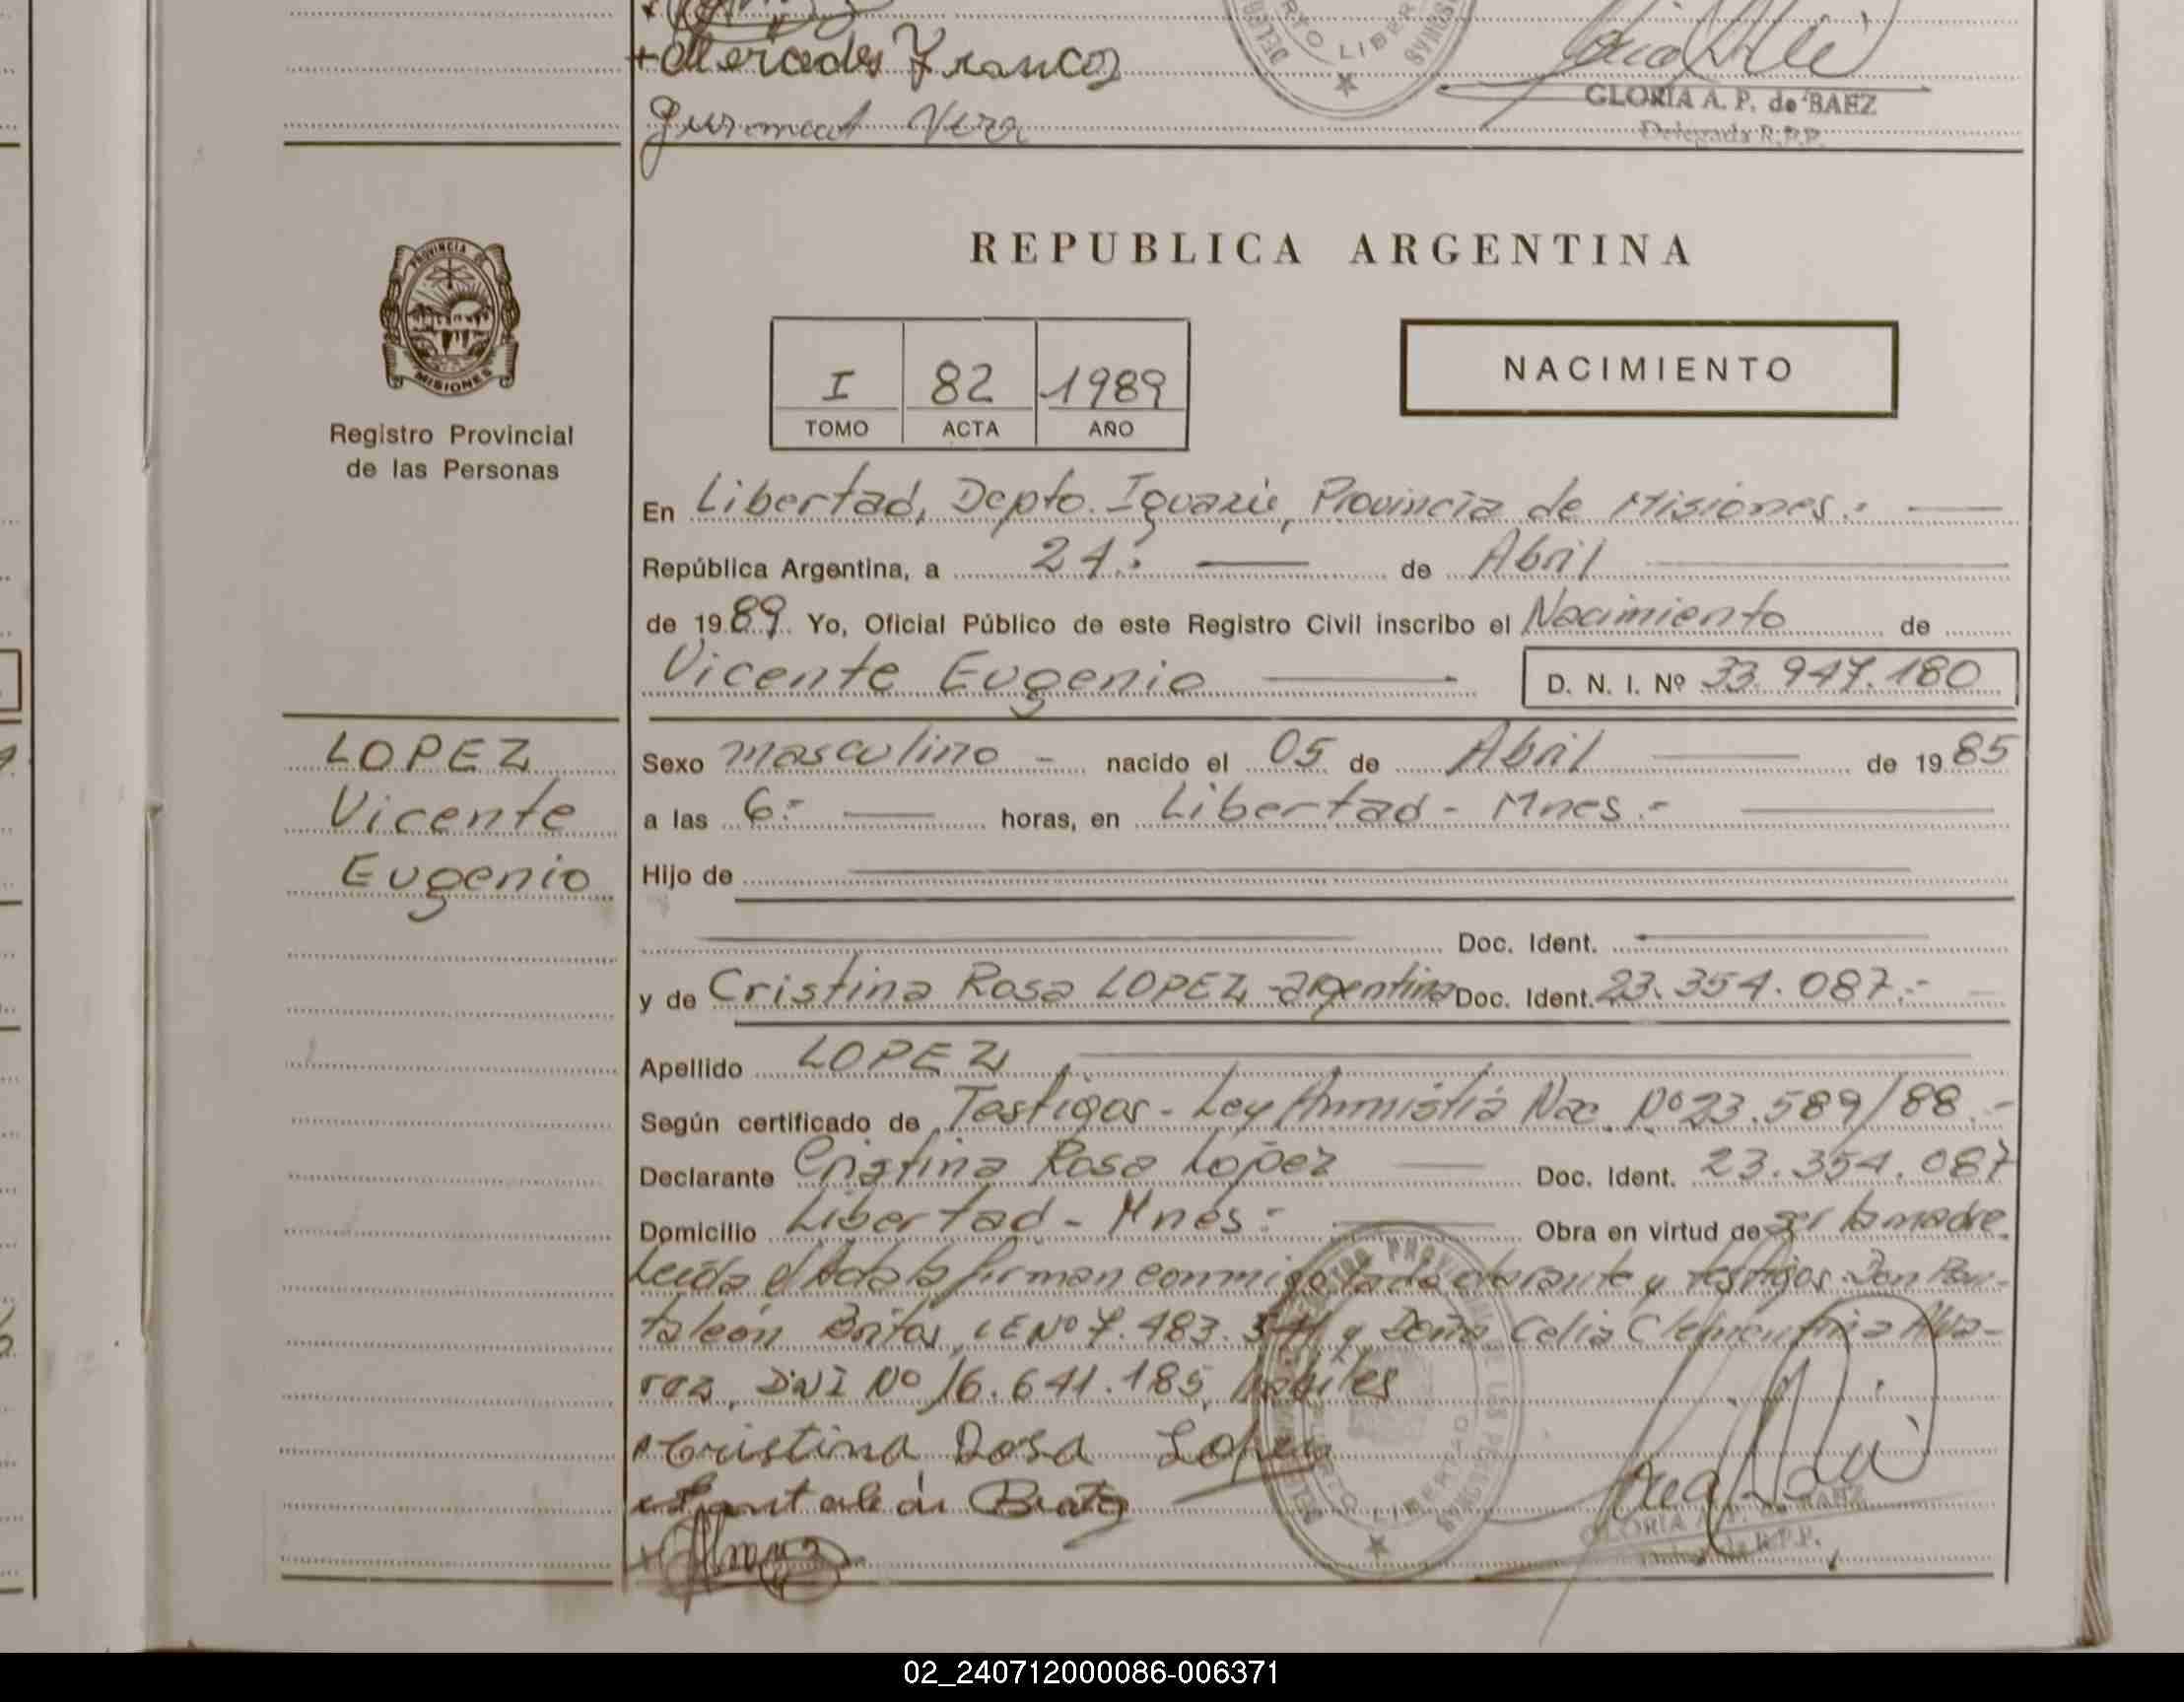 Mercedes Franco
Vera
GLORIA A. P. de BAEZ
Delegada R.P.P.
LIBER
PROVINCIA DE
MISIONES
Registro Provincial
de las Personas
REPUBLICA ARGENTINA
I 82 1989
TOMO ACTA AÑO
NACIMIENTO
En Libertad, Depto. Iguazú, Provincia de Misiones.-
República Argentina, a 24.- de Abril
de 1989 Yo, Oficial Público de este Registro Civil inscribo el Nacimiento de
Vicente Eugenio D. N. I. Nº 33.947.180
LOPEZ
Vicente
Eugenio
Sexo masculino - nacido el 05 de Abril de 1985
a las 6.- horas, en Libertad - Mnes.-
Hijo de
Doc. Ident.
y de Cristina Rosa LOPEZ -argentina Doc. Ident. 23.354.087.-
Apellido LOPEZ
Según certificado de Testigos - Ley Ammistiá Nac. Nº 23.589/88.-
Declarante Cristina Rosa Lopez Doc. Ident. 23.354.087
Domicilio Libertad - Mnes.- Obra en virtud de ser la madre.
Leída el Acta la firman conmigo la declarante y testigos Don Pan-
taleón Britos, LE Nº 7.483. y Doña Celia Clementina Alva-
rez, DNI Nº 16.641.185, hábiles
Cristina Rosa Lopez
Pantaleón
GLORIA A. P. de BAEZ
R.P.P.
LIBERTAD
02_240712000086-006371